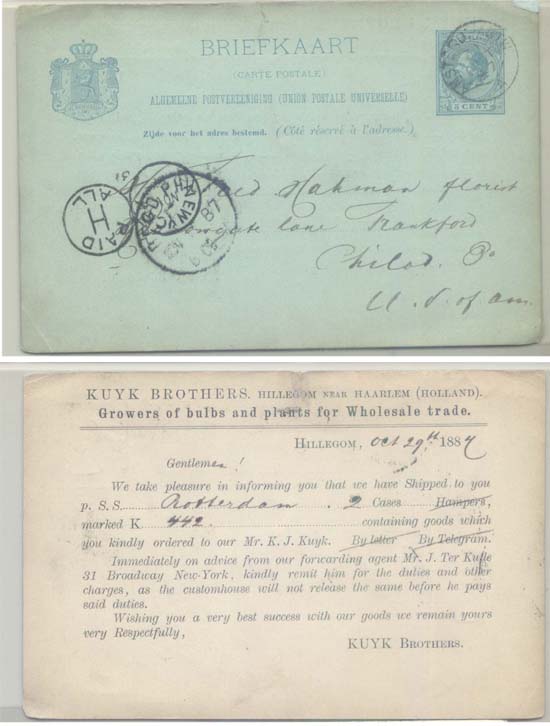 BRIEFKAART
(CARTE POSTALE)
ALGEMEENE POSTVEREENIGING (UNION POSTALE UNIVERSELLE)
5 CENT
Zijde voor het adres bestemd. (Côté réservé à l'adresse.)
PAID
H
ALL
NEW YORK
87
Fred Hahman florist
lane Frankford
Philad. Pa
U. S. of am.
KUYK BROTHERS. HILLEGOM NEAR HAARLEM (HOLLAND).
Growers of bulbs and plants for Wholesale trade.
HILLEGOM, Oct 29th 1887
Gentlemen!
We take pleasure in informing you that we have Shipped to you
p. S.S. Rotterdam . 2 Cases Hampers,
marked K. 442 containing goods which
you kindly ordered to our Mr. K. J. Kuyk. By letter By Telegram.
Immediately on advice from our forwarding agent Mr. J. Ter Kuile
31 Broadway New-York, kindly remit him for the duties and other
charges, as the customhouse will not release the same before he pays
said duties.
Wishing you a very best success with our goods we remain yours
very Respectfully,
KUYK BROTHERS.